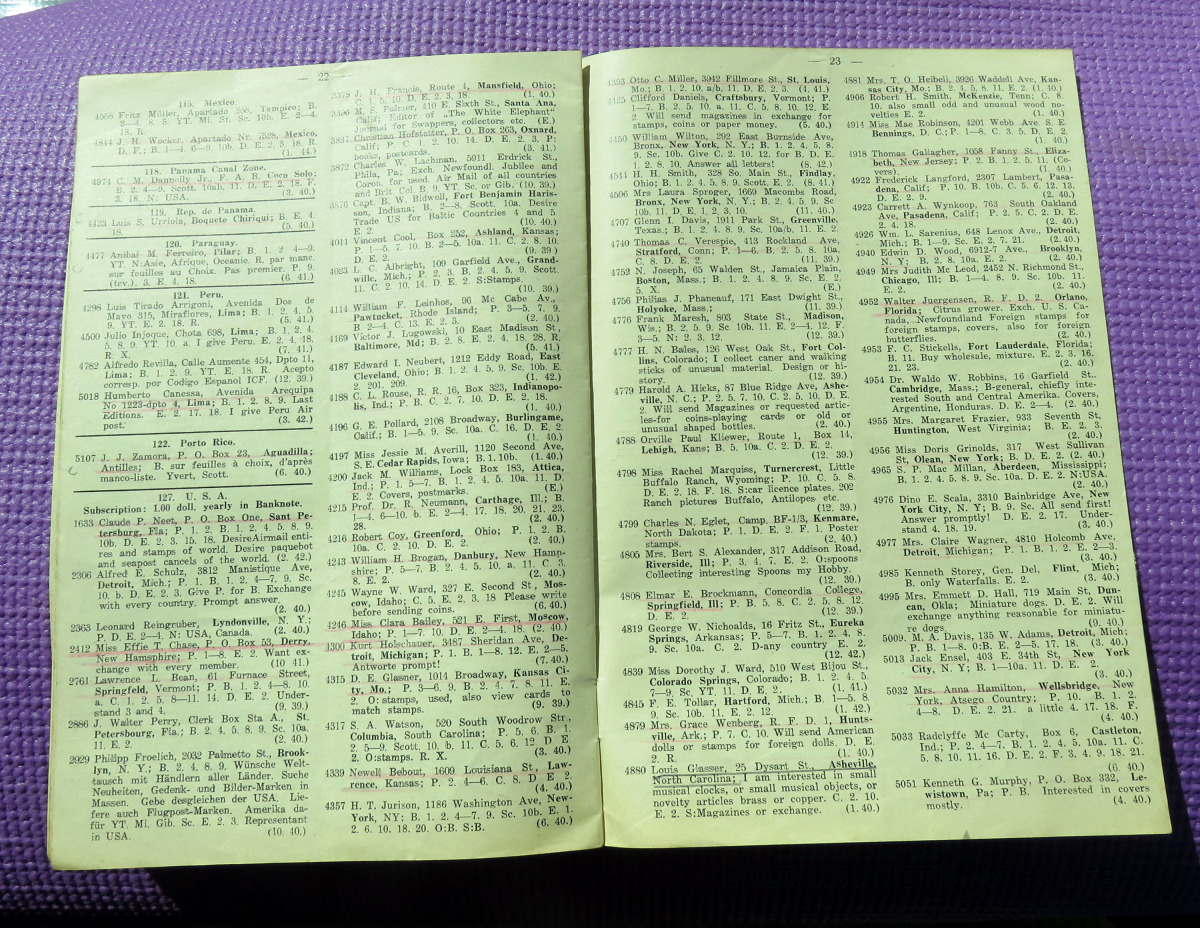 — 22 —
115. Mexico.
4568 Fritz Müller, Apartado 258, Tampico; B.
2—4 8. 5. YT. Mi. St. Sc. 10b. E. 2—4.
18. R. (2. 40.)
4844 J. H. Wocker, Apartado Nr. 7528, Mexico,
D. F.; B. 1—4. 6—9. 10b. D. E. 2. 3. 18. R.
(1. 44.)
118. Panama Canal Zone.
4974 C. M. Dannelly Jr., F. A. B. Coco Solo;
B. 2. 4—9. Scott. 10ab. 11. D. E. 2. 18. F.
3. 18. N: USA. (3. 40.)
119. Rep. de Panama.
4423 Luis S. Urriola, Boquete Chiriqui; B. E. 4.
18. (5. 40.)
120. Paraguay.
4477 Anibal M. Ferreiro, Pilar; B. 1. 2. 4—9.
YT. N:Asie, Afrique, Oceanie. R. par manc.
sur feuilles au Choix. Pas premier. P. 9.
(tcv.). 3. E. 4. 18. (6. 41.)
121. Peru.
4298 Luis Tirado Arrigoni, Avenida Dos de
Mayo 315, Miraflores, Lima; B. 1. 2. 4. 5.
9. YT. E. 2. 18. R. (5. 41.)
4500 Julio Injoque, Chota 698, Lima; B. 1. 2. 4.
5. 8. 9. YT. 10. a. I give Peru. E. 2. 4. 18.
R. X. (7. 41.)
4782 Alfredo Revilla, Calle Aumente 454, Dpto 11,
Lima; B. 1. 2. 9. YT. E. 18. R. Acepto
corresp. por Codigo Espanol ICF. (12. 39.)
5018 Humberto Canessa, Avenida Arequipa
No 1223-dpto 4, Lima; B. 1. 2. 8. 9. Last
Editions. E. 2. 17. 18. I give Peru Air
post. (3. 42.)
122. Porto Rico.
5107 J. J. Zamora, P. O. Box 23, Aguadilla;
Antilles; B. sur feuilles à choix, d'après
manco-liste. Yvert, Scott. (6. 40.)
127. U. S. A.
Subscription: 1.00 doll. yearly in Banknote.
1633 Claude P. Neet, P. O. Box One, Sant Pe-
tersburg, Fla; P. 1. 2. B. 1. 2. 4. 5. 8. 9.
10b. D. E. 2. 3. 15. 18. Desire Airmail enti-
res and stamps of world. Desire paquebot
and seapost cancels of the world. (2. 42.)
2306 Alfred E. Schulz, 3812 Manistique Ave,
Detroit, Mich.; P. 1. B. 1. 2. 4—7. 9. Sc.
10. b. D. E. 2. 3. Give P. for B. Exchange
with every country. Prompt answer.
(2. 40.)
2363 Leonard Reingruber, Lyndonville, N. Y.;
P. D. E. 2—4. N: USA, Canada. (2. 40.)
2412 Miss Effie T. Chase, P. O. Box 53, Derry,
New Hamsphire; P. 1—8. E. 2. Want ex-
change with every member. (10 41.)
2761 Lawrence L. Bean, 61 Furnace Street,
Springfeld, Vermont; P. B. 1. 2. 4—8. 10.
a. C. 1. 2. 5. 8—11. 14. D. E. 2. Under-
stand 3. and 4. (9. 39.)
2886 J. Walter Perry, Clerk Box Sta A., St.
Petersbourg, Fla.; B. 2. 4. 5. 8. 9. Sc. 10a.
11. E. 2. (2. 40.)
2929 Philipp Froelich, 2032 Palmetto St., Brook-
lyn, N. Y.; B. 2. 4. 8. 9. Wünsche Welt-
tausch mit Händlern aller Länder. Suche
Neuheiten, Gedenk- und Bilder-Marken in
Massen. Gebe desgleichen der USA. Lie-
fere auch Flugpost-Marken. Amerika da-
für YT. Mi. Gib. Sc. E. 2. 3. Representant
in USA. (10. 40.)
J. H. Francis, Route 1, Mansfield, Ohio;
C. 1. 5. 10. D. E. 2. 3. 18. (1. 40.)
M. S. Palmer, 410 E. Sixth St., Santa Ana,
Calif; Editor of „The White Elephant"
Journal for Swappers, collectors etc. (E.)
Christian Hofstetter, P. O. Box 263, Oxnard,
Calif; P. C. 1. 2. 10. 14. D. E. 2. 3. P:
books, postcards. (3. 41.)
3872 Charles W. Lachman, 5911 Erdrick St.,
Phila, Pa; Exch. Newfoundl. Jubilee and
Coron. for used. Air Mail of all countries
and Brit. Col. B. 9. YT. Sc. or Gib. (10. 39.)
3876 Capt. B. W. Bidwell, Fort Benjamin Haris-
son, Indiana; B. 2—8. Scott. 10a. Desire
Trade US for Baltic Countries 4 and 5
E. 2. (10. 40.)
4011 Vincent Cool, Box 252, Ashland, Kansas;
P. 1—5. 7. 10. B. 2—5. 10a. 11. C. 2. 8. 10.
E. 2. (9. 39)
4023 L. C. Albright, 109 Garfield Ave., Grand-
ville, Mich.; P. 2. 3. B. 2. 4. 5. 9. Scott.
11. C. 2. 10. 14. D. E. 2. S:Stamps.
(10. 39.)
4114 William F. Leinhos, 96 Mc Cabe Av.,
Pawtucket, Rhode Island; P. 3—5. 7. 9.
B. 2—4. C. 13. E. 2. 3. (2. 40.)
4169 Victor J. Lugowski, 10 East Madison St,
Baltimore, Md; B. 2. 8. E. 2. 4. 18. 28. R.
(5. 41.)
4187 Edward I. Neubert, 1212 Eddy Road, East
Cleveland, Ohio; B. 1. 2. 4. 5. 9. Sc. 10b. E.
2. 201. 209. (1. 42.)
4188 C. L. Rouse, R. R. 16, Box 323, Indianopo-
lis, Ind.; P. B. C. 2. 7. 10. D. E. 2. 18.
(1. 40.)
4196 G. E. Pollard, 2108 Broadway, Burlingame,
Calif.; B. 1—5. 9. Sc. 10a. C. 16. D. E. 2.
(1. 40.)
4197 Miss Jessie M. Averill, 1120 Second Ave,
S. E. Cedar Rapids, Iowa; B. 1. 10b. (1. 40.)
4200 Jack M. Williams, Lock Box 183, Attica,
Ind.; P. 1. 5—7. B. 1. 2. 4. 5. 10a. 11. D.
E. 2. Covers, postmarks. (E.)
4215 Prof. Dr. R. Neumann, Carthage, Ill; B.
1—4. 6—10. b. E. 2—4. 17. 18. 20. 21. 23.
28. (2. 40.)
4216 Robert Coy, Greenford, Ohio; P. 1. 2. B.
10a. C. 2. 10. D. E. 2. (2. 40.)
4243 William H. Brogan, Danbury, New Hamp-
shire; P. 5—7. B. 2. 4. 5. 10. a. 11. C. 3.
8. E. 2. (2. 40.)
4245 Wayne W. Ward, 327 E. Second St., Mos-
cow, Idaho; C. 5. E. 2. 3. 18 Please write
before sending coins. (6. 40.)
4246 Miss Clara Bailey, 521 E. First, Moscow,
Idaho; P. 1—7. 10. D. E. 2—4. 18. (2. 40.)
4300 Kurt Holschauer, 3487 Sheridan Ave, De-
troit, Michigan; P. 1. B. 1—8. 12. E. 2—5.
Antworte prompt! (7. 40.)
4315 D. E. Glasner, 1014 Broadway, Kansas Ci-
ty, Mo.; P. 3—6. 9. B. 2. 4. 7. 8. 11. E.
2. O: stamps, used, also view cards to
match stamps. (9. 39.)
4317 S. A. Watson, 520 South Woodrow Str.,
Columbia, South Carolina; P. 5. 6. B. 1.
2. 5—9. Scott. 10. b. 11. C. 5. 6. 12 D E
2. O:stamps. R. X. (3. 40.)
4339 Newell Bebout, 1609 Louisiana St., Law-
rence, Kansas; P. 2. 4—6. C. 8. D E 2.
(4. 40.)
4357 H. T. Jurison, 1186 Washington Ave, New-
York, NY; B. 1. 2. 4—7. 9. Sc. 10b. E. 1.
2. 6. 10. 18. 20. O:B. S:B. (6. 40.)
— 23 —
4393 Otto C. Miller, 3942 Fillmore St., St. Louis,
Mo.; B. 1. 2. 10. a/b. 11. D E. 2. 3. (4. 41.)
4425 Clifford Daniels, Craftsbury, Vermont; P.
1—7. B. 2. 5. 10. a. 11. C. 5. 8. 10. 12. E.
2. Will send magazines in exchange for
stamps, coins or paper money. (5. 40.)
4450 William Wilton, 292 East Burnside Ave,
Bronx, New York, N. Y.; B. 1. 2. 4. 5. 8.
9. Sc. 10b. Give C. 2. 10. 12. for B. D. E.
1. 2. 8. 10. Answer all letters! (8. 42.)
4544 H. H. Smith, 328 So. Main St., Findlay,
Ohio; B. 1. 2. 4. 5. 8. 9. Scott. E. 2. (8. 41.)
4596 Mrs Laura Sproger, 1669 Macombs Road,
Bronx, New York, N. Y.; B. 2. 4. 5. 9. Sc
10b. 11. D. E. 1. 2. 3. 10. (11. 40.)
4707 Glenn I. Davis, 1911 Park St., Greenville,
Texas.; B. 1. 2. 4. 8. 9. Sc. 10a/b. 11. E. 2.
4740 Thomas C. Verespie, 413 Rockland Ave,
Stratford, Conn; P. 1—6. B. 2. 5. 8. 10a.
C. 8. D. E. 2. (11. 39.)
4752 N. Joseph, 65 Walden St., Jamaica Plain,
Boston, Mass.; B. 1. 2. 4. 8. 9. Sc. E. 2.
5. X. (E.)
4756 Philias J. Phaneauf, 171 East Dwight St.,
Holyoke, Mass.; (11. 39.)
4776 Frank Maresh, 803 State St., Madison,
Wis.; B. 2. 5. 9. Sc. 10b. 11. E. 2—4. 12. F.
3—5. N: 2. 3. 12. (12. 39.)
4777 H. N. Bales, 126 West Oak St., Fort Col-
lins, Colorado; I collect caner and walking
sticks of unusual material. Design or hi-
story. (12. 39.)
4779 Harold A. Hicks, 87 Blue Ridge Ave, Ashe-
ville, N. C.; P. 2. 5. 7. 10. C. 2. 5. 10. D. E.
2. Will send Magazines or requested artic-
les-for coins-playing cards or old or
unusual shaped bottles. (2. 40.)
4788 Orville Paul Kliewer, Route 1, Box 14,
Lehigh, Kans; B. 5. 10a. C. 2. D. E. 2.
(12. 39.)
4798 Miss Rachel Marquiss, Turnercrest, Little
Buffalo Ranch, Wyoming; P. 10. C. 5. 8.
D. E. 2. 18. F. 18. S:car licence plates. 202
Ranch pictures Buffalo, Antilopes etc.
(12. 39.)
4799 Charles N. Eglet, Camp. BF-1/3, Kenmare,
North Dakota; P. 1. D. E. 2. F. 1. Poster
stamps. (2. 40.)
4805 Mrs. Bert S. Alexander, 317 Addison Road,
Riverside, Ill; P. 3. 4. 7. E. 2. O:spoons
Collecting interesting Spoons my Hobby.
(12. 39.)
4808 Elmar E. Brockmann, Concordia College,
Springfield, Ill; P. B. 5. 8. C. 2. 5. 8. 12.
D. E. 2. (12. 39.)
4819 George W. Nicholds, 16 Fritz St., Eureka
Springs, Arkansas; P. 5—7. B. 1. 2. 4. 8.
9. Sc. 10a. C. 2. D-any country E. 2.
(12. 42.)
4839 Miss Dorothy J. Ward, 510 West Bijou St.,
Colorado Springs, Colorado; B. 1. 2. 4. 5.
7—9. Sc. YT. 11. D. E. 2. (1. 41.)
4845 F. E. Tollar, Hartford, Mich.; B. 1—5. 8.
9. Sc. 10b. 11. E. 2. 12. (1. 42.)
4879 Mrs. Grace Wenberg, R. F. D. 1, Hunts-
ville, Ark.; P. 7. C. 10. Will send American
dolls or stamps for foreign dolls. D. E.
2. R. (1. 40.)
4880 Louis Glasser, 25 Dysart St., Asheville,
North Carolina; I am interested in small
musical clocks, or small musical objects, or
novelty articles brass or copper. C. 2. 10.
E. 2. S:Magazines or exchange. (1. 40.)
4881 Mrs. T. O. Heibeli, 3926 Waddell Ave, Kan-
sas City, Mo.; B. 2. 4. 5. 8. 11. E. 2. (1. 40.)
4906 Robert H. Smith, McKenzie, Tenn; C. 8.
10. also small odd and unusual wood no-
velties E. 2. (1. 40.)
4914 Miss Mae Robinson, 4201 Webb Ave. S. E.
Bennings, D. C.; P. 1—8. C. 3. 5. D. E. 2.
(1. 40.)
4918 Thomas Gallagher, 1058 Fanny St., Eliza-
beth, New Jersey; P. 2. B. 1. 2. 5. 11. (Co-
vers). (1. 40.)
4922 Frederick Langford, 2307 Lambert, Pasa-
dena, Calif; P. 10. B. 10b. C. 5. 6. 12. 13.
D. E. 2. 9. (2. 40.)
4923 Carrett A. Wynkoop, 763 South Oakland
Ave, Pasadena, Calif; P. 2. 5. C. 2. D. E.
2. 4. 18. (2. 40.)
4926 Wm. L. Sarenius, 648 Lenox Ave., Detroit,
Mich.; B. 1—9. Sc. E. 2. 7. 21. (2. 40.)
4940 Edwin D. Wood, 6912-7 Ave., Brooklyn,
N. Y; B. 2. 8. 10a. E. 2. (2. 40.)
4949 Mrs Judith Mc Leod, 2452 N. Richmond St.,
Chicago, Ill; B. 1—4. 8. 9. Sc. 10b. 11.
E. 2. (2. 40.)
4952 Walter Juergensen, R. F. D. 2. Orlano,
Florida; Citrus grower. Exch. U. S. Ca-
nada, Newfoundland Foreign stamps for
foreign stamps, covers, also for foreign
butterflies. (2. 40.)
4953 F. C. Stickells, Fort Lauderdale, Florida;
B. 11. Buy wholesale, mixture. E. 2. 3. 16.
21. 23. (2. 40.)
4954 Dr. Waldo W. Robbins, 16 Garfield St..
Cambridge, Mass.; B-general, chiefly inte-
rested South and Central America. Covers,
Argentine, Honduras. D. E. 2—4. (2. 40.)
4955 Mrs. Margaret Frazier, 933 Seventh St,
Huntington, West Virginia; B. E. 2. 3.
(2. 40.)
4956 Miss Doris Grinolds, 317 West Sullivan
St, Olean, New York; B. D. E. 2. (2. 40.)
4965 S. P. Mac Millan, Aberdeen, Mississippi;
B. 1. 2. 4. 5. 8. 9. Sc. 10a. D. E. 2. N:USA.
(2. 40.)
4976 Dino E. Scala, 3310 Bainbridge Ave, New
York City, N. Y; B. 9. Sc. All send first!
Answer promptly! D. E. 2. 17. Under-
stand 4. 18. 19. (3. 40.)
4977 Mrs. Claire Wagner, 4810 Holcomb Ave,
Detroit, Michigan; P. 1. B. 1. 2. E. 2—3.
(3. 40.)
4985 Kenneth Storey, Gen. Del, Flint, Mich;
B. only Waterfalls. E. 2. (3. 40.)
4995 Mrs. Emmett D. Hall, 719 Main St, Dun-
can, Okla; Miniature dogs. D. E. 2. Will
exchange anything reasonable for miniatu-
re dogs. (9. 40.)
5009. M. A. Davis, 135 W. Adams, Detroit, Mich;
P. B. 1—8. 0:B. E. 2—5. 17. 18. (3. 40.)
5013 Jack Ensel, 403 E. 34th St, New York
City, N. Y; B. 1—10a. 11. D. E. 2.
(3. 40.)
5032 Mrs. Anna Hamilton, Wellsbridge, New
York, Atsego Country; P. 10. B. 1. 2.
4—8. D. E. 2. 21. a little 4. 17. 18. F.
(4. 40.)
5033 Radclyffe Mc Carty, Box 6, Castleton,
Ind.; P. 2. 4—7. B. 1. 2. 4. 5. 10a. 11. C.
5. 8. 10. 11. 16. D. E. 2. F. 3. 4. 9. 18. 21.
(6. 40.)
5051 Kenneth G. Murphy, P. O. Box 332, Le-
wistown, Pa; P. B. Interested in covers
mostly. (4. 40.)